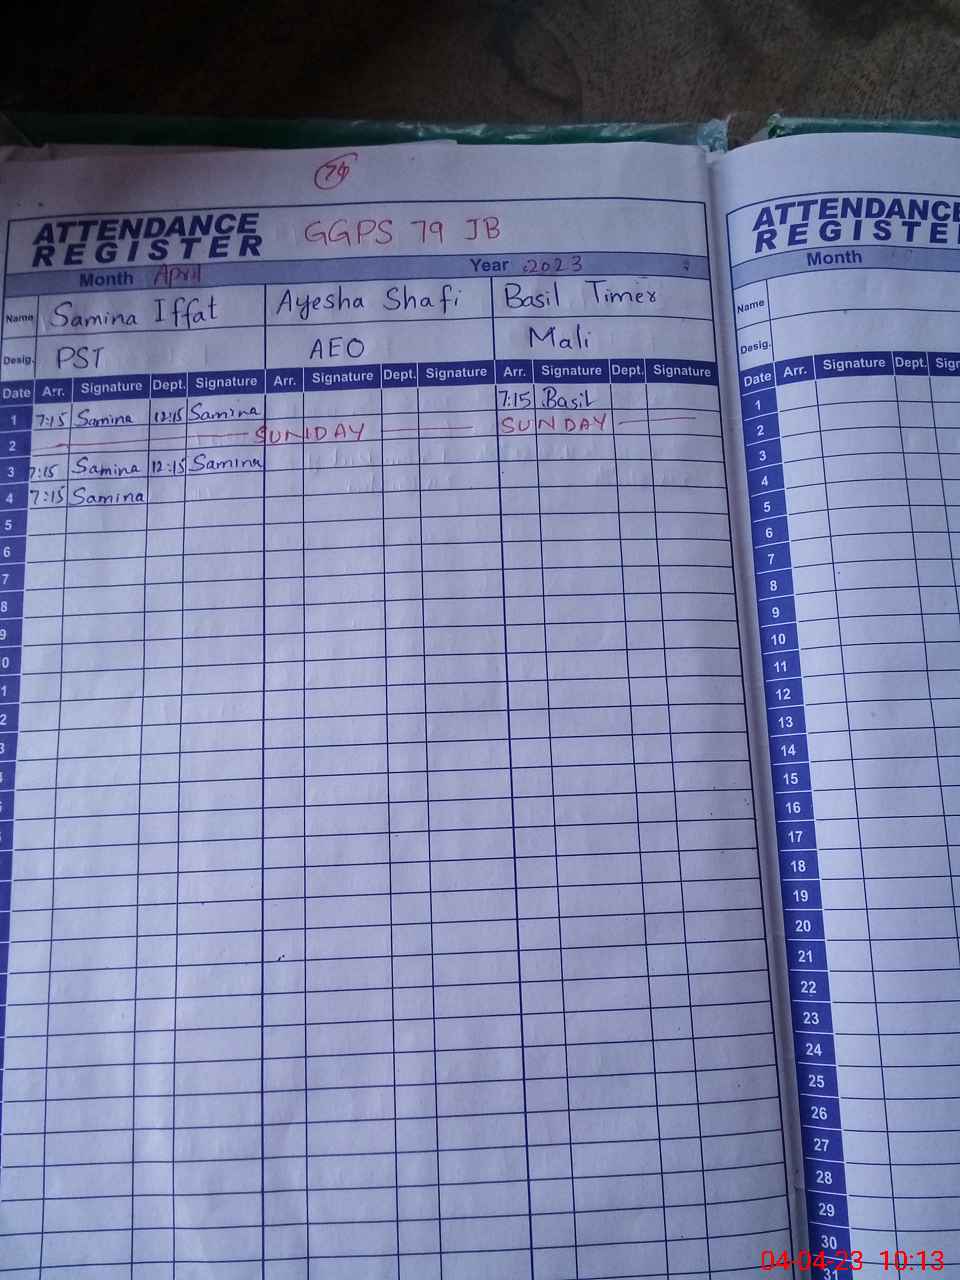 74
ATTENDANCE REGISTER GGPS 79 JB
Month April Year 2023
Name Samina Iffat Ayesha Shafi Basil Timer
Desig. PST AEO Mali
Date Arr. Signature Dept. Signature Arr. Signature Dept. Signature Arr. Signature Dept. Signature
1 7:15 Samina 12:15 Samina 7:15 Basil
2 SUNDAY SUNDAY
3 7:15 Samina 12:15 Samina
4 7:15 Samina
5
6
7
8
9
0
1
2
3
ATTENDANCE
REGISTE
Month
Name
Desig.
Date Arr. Signature Dept. Sig
1
2
3
4
5
6
7
8
9
10
11
12
13
14
15
16
17
18
19
20
21
22
23
24
25
26
27
28
29
30
31
04-04-23 10:13